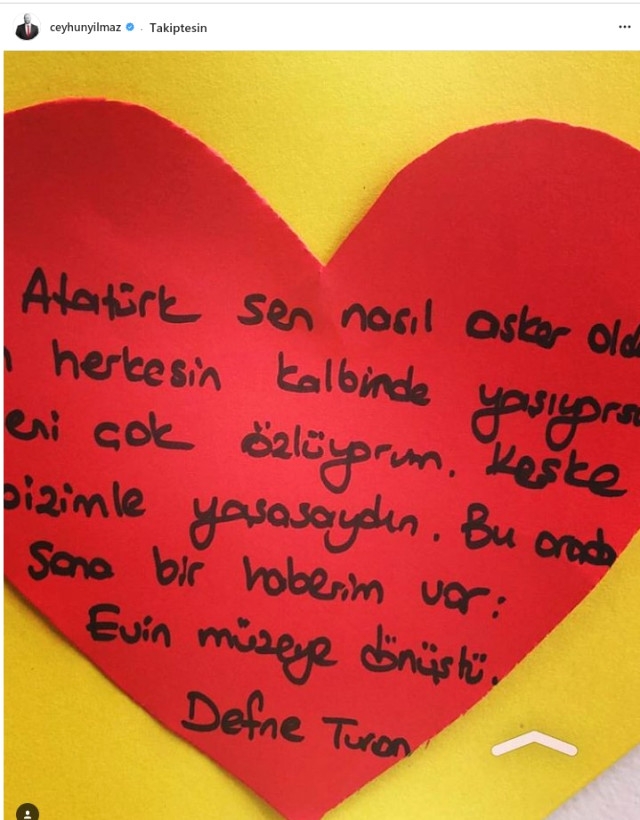 ceyhunyilmaz · Takiptesin
Atatürk sen nasıl asker old
herkesin kalbinde yaşıyors
eni çok özlüyorum. Keşke
bizimle yaşasaydın. Bu arada
Sana bir haberim var:
Evin müzeye dönüştü.
Defne Turan